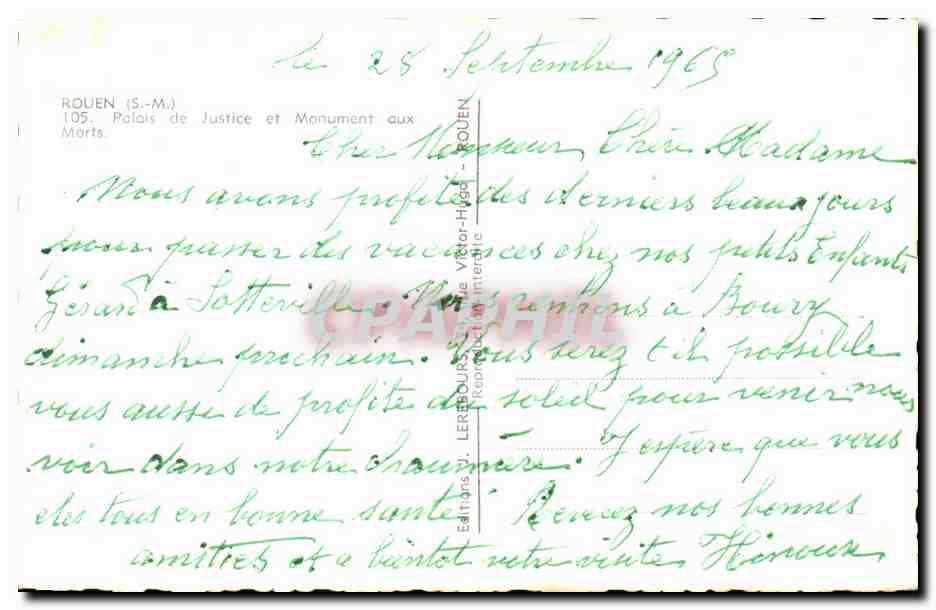 le 28 Septembre 1965
ROUEN (S.-M.)
105. Palais de Justice et Monument aux
Morts.
Cher Monsieur, Chère Madame
Nous avons profité des derniers beaux jours
pour passer des vacances chez nos petits Enfants
Gérard à Sotteville. Nous rentrons à Boury
dimanche prochain. Vous serez t il possible
vous aussi de profité du soleil pour venir nous
voir dans notre chaumière. J espère que vous
etes tous en bonne santé. Recevez nos bonnes
amitiés et a bientot votre visite
Editions J. LEREBOURS, Rue Victor-Hugo - ROUEN
Reproduction interdite
CPAPHIL